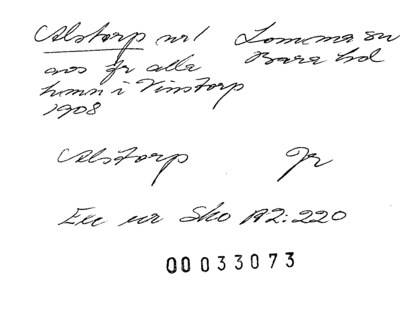 Alstorp nr 1 Lomma sn
avs fr alla Bara hd
hemn i Vinstorp
1908
Alstorp Jr
Ele ur Sko A2:220
00033073